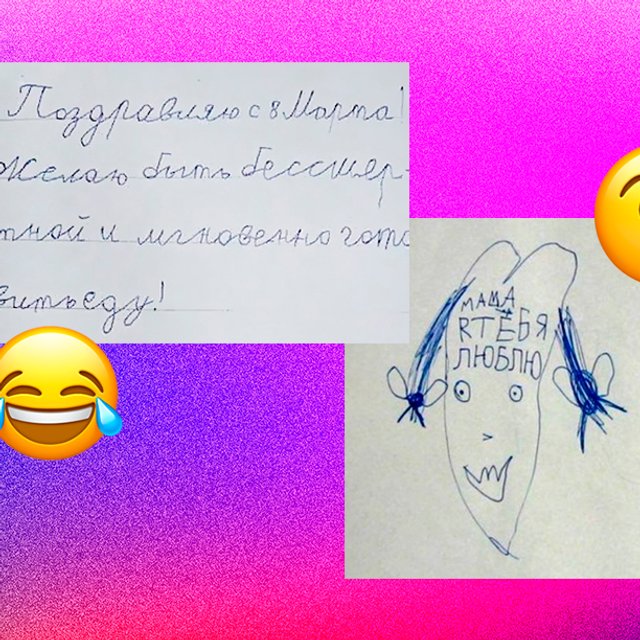 Поздравляю с 8 Марта!
Желаю быть бессмер-
тной и мгновенно гото
вить еду!
МАША
Я ТЕБЯ
ЛЮБЛЮ